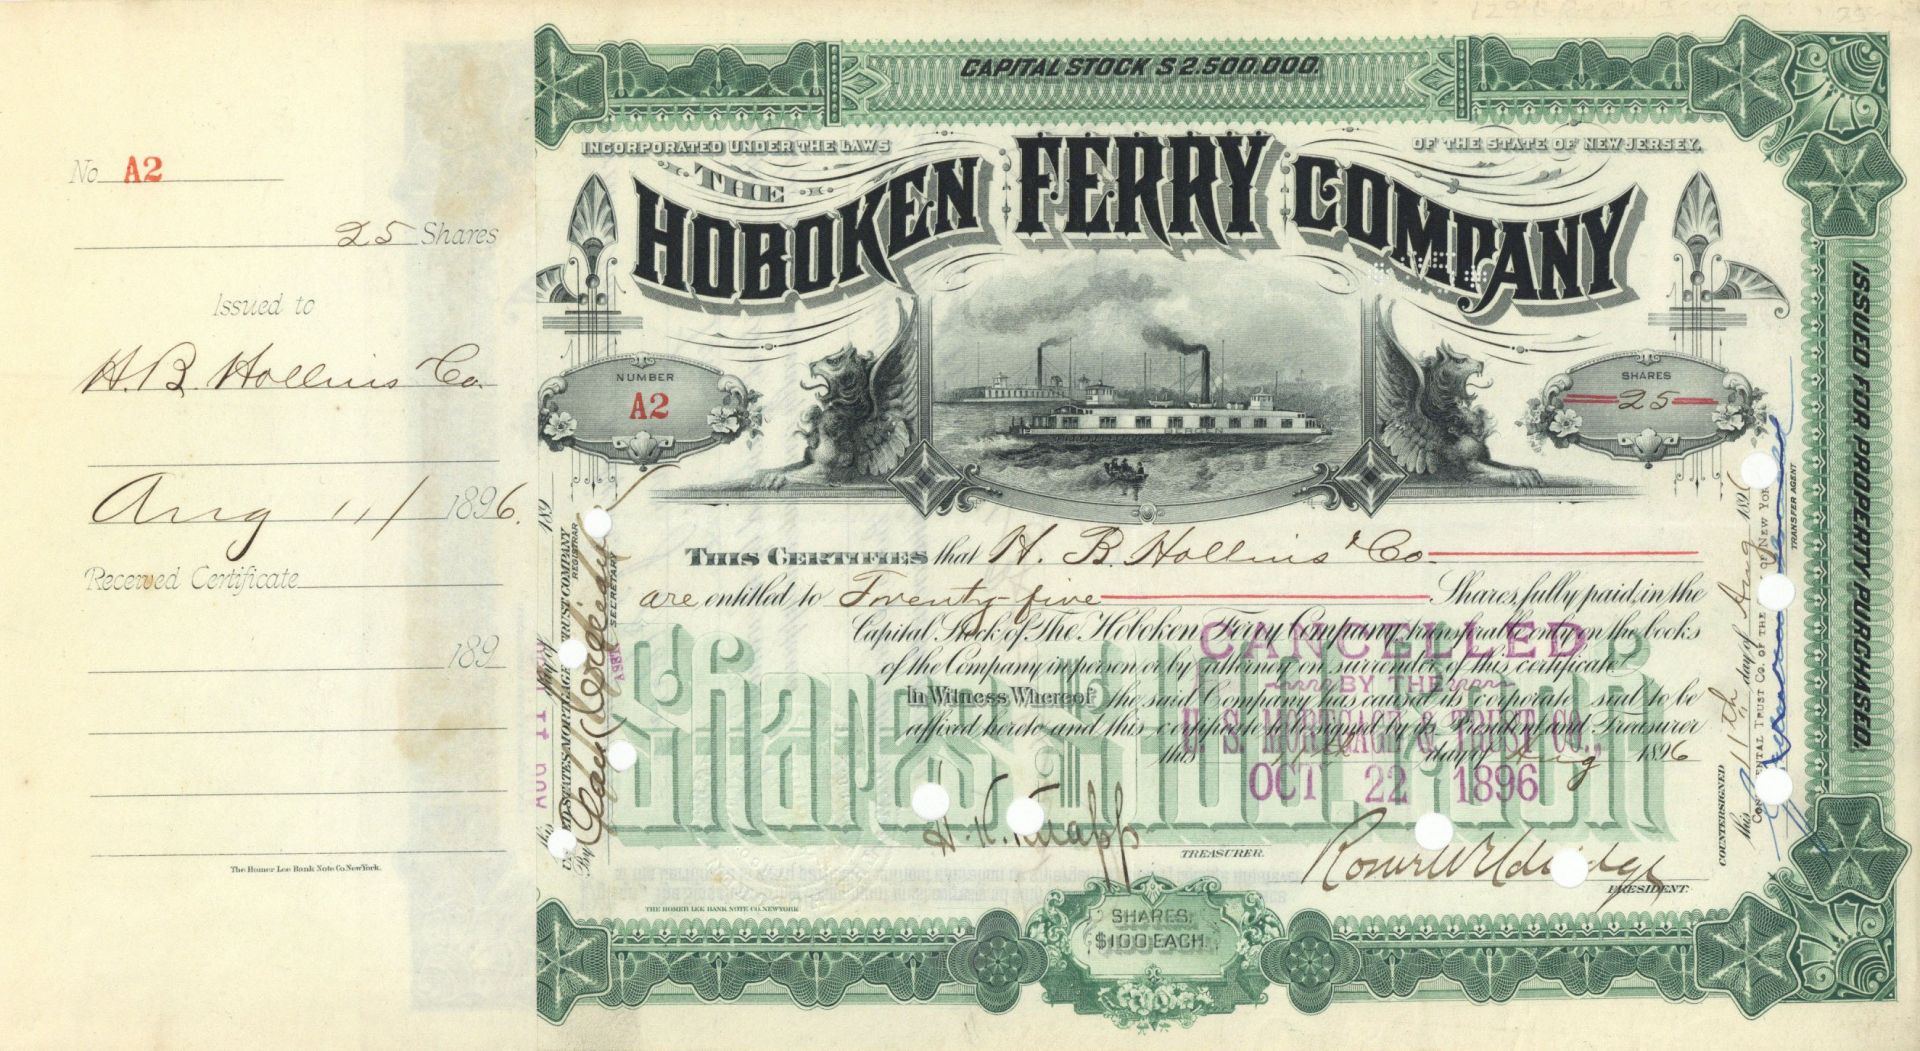 No A2
25 Shares
Issued to
H. B. Hollins Co.
Aug 11/ 1896.
Received Certificate
189
The Homer Lee Bank Note Co. New York.
CAPITAL STOCK $2.500.000.
INCORPORATED UNDER THE LAWS
OF THE STATE OF NEW JERSEY.
THE
HOBOKEN FERRY COMPANY
NUMBER
A2
SHARES
25
BERGEN
THIS CERTIFIES that H. B. Hollins & Co.
are entitled to Twenty-five Shares, fully paid, in the
Capital Stock of The Hoboken Ferry Company, transferable only on the books
of the Company in person or by attorney on surrender of this certificate.
In Witness Whereof the said Company has caused its corporate seal to be
affixed hereto and this certificate to be signed by its President and Treasurer
this 11th day of Aug 1896
CANCELLED
BY THE
U. S. MORTGAGE & TRUST CO.,
OCT 22 1896
Shares $100. Each
H. K. Knapp
TREASURER.
Roswell Eldridge
PRESIDENT.
THE HOMER LEE BANK NOTE CO. NEW YORK
SHARES,
$100 EACH.
ISSUED FOR PROPERTY PURCHASED.
COUNTERSIGNED
this 11th day of Aug 1896
CONTINENTAL TRUST CO. OF THE CITY OF NEW YORK
TRANSFER AGENT
this day of 189
UNITED STATES MORTGAGE & TRUST COMPANY
REGISTRAR
By
ASST. SECRETARY
AUG 11